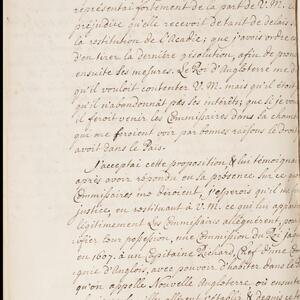 représentai fortement de la part de V. M. le
préjudice qu'elle recevoit de tant de délais,
la restitution de l'Acadie; que j'avois ordre
d'en tirer la dernière résolution, afin de pren
ensuite ses mesures. Le Roi d'Angleterre me d
qu'il vouloit contenter V. M. mais qu'il étoit
qu'il n'abandonnât pas ses intérêts; que si je vou
il feroit venir les Commissaires dans sa cham
qui me feroient voir par bonnes raisons le droit
avoit dans le Pais.
J'acceptai cette proposition & lui témoignai
après avoir répondu en sa présence sur ce que
Commissaires me diroient, j'espérois qu'il me fe
justice, en restituant à V. M. ce qui lui appart
légitimement. Les Commissaires alléguèrent, pour
tifier leur possession, une Commission du Roi Jac
en 1607. à un Capitaine Richard, Chef d'une Com
gnie d'Anglois, avec pouvoir d'habiter dans le
qu'on appelle Nouvelle Angleterre, où ensuite